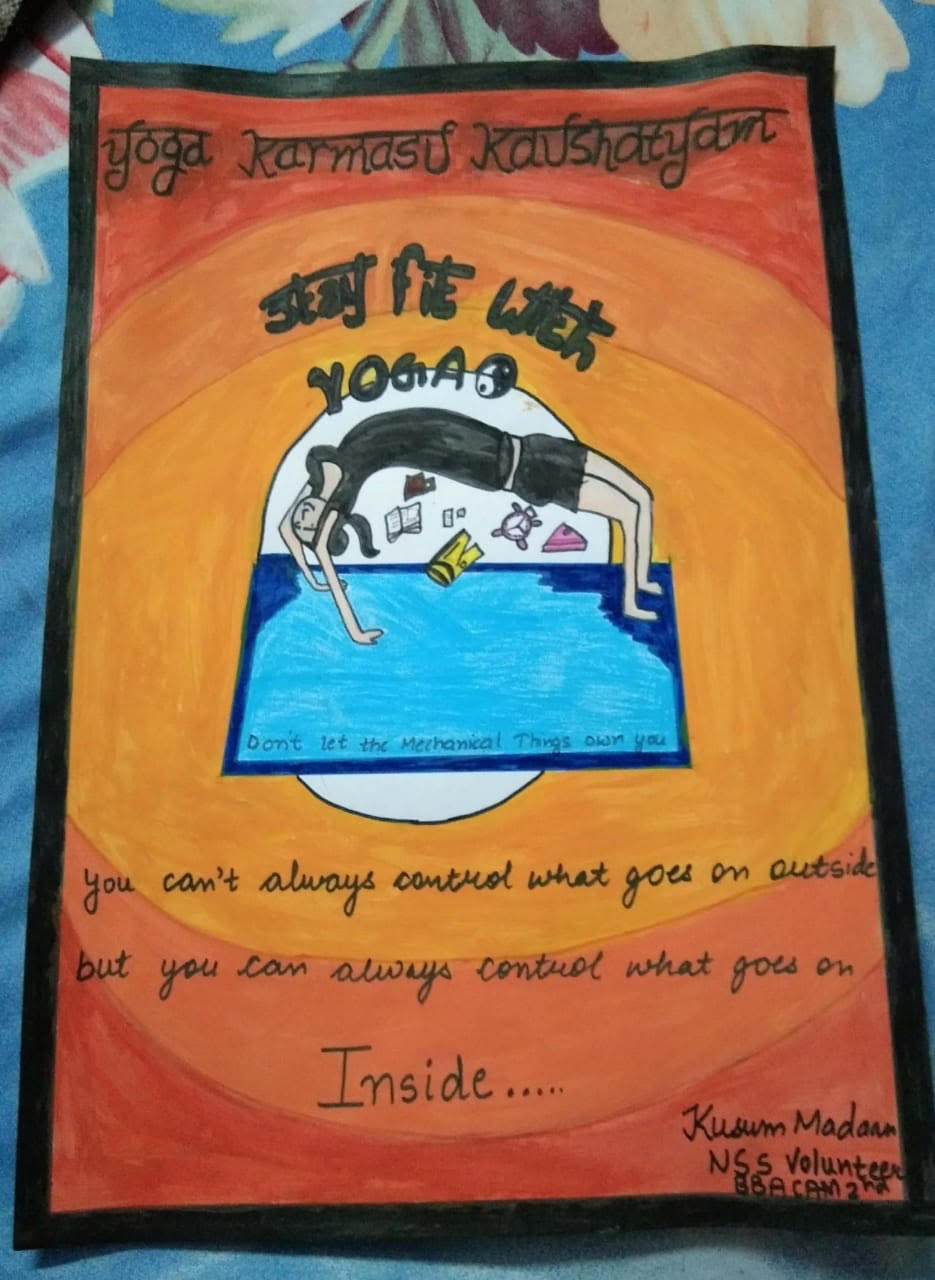 Yoga Karmasu Kaushatyam
Stay Fit With
YOGA
Don't let the Mechanical Things own you
You can't always control what goes on outside
but you can always control what goes on
Inside.....
Kusum Madaan
NSS Volunteer
BBA CAM 2nd